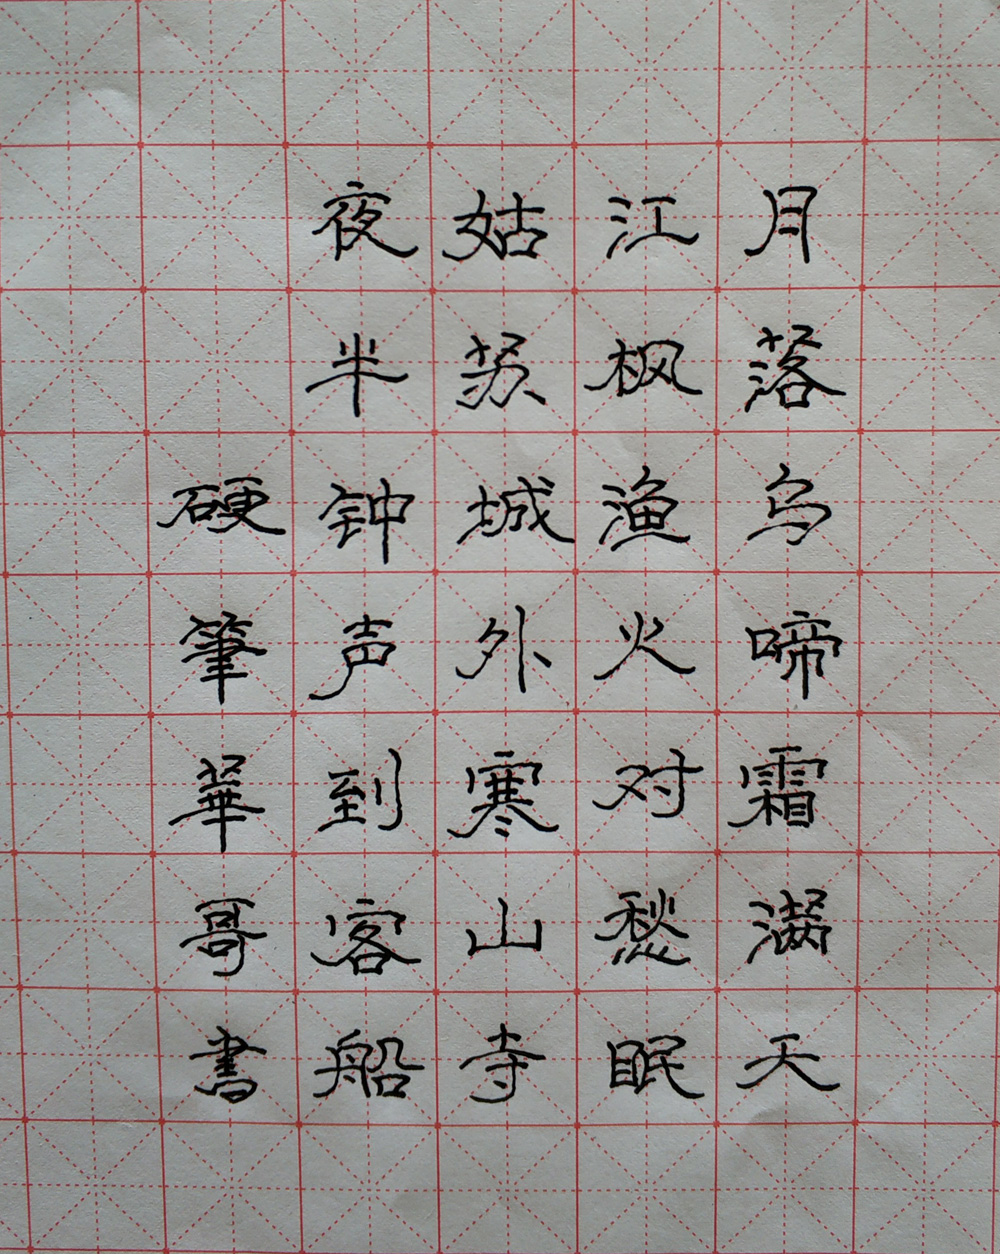 月落乌啼霜满天
江枫渔火对愁眠
姑苏城外寒山寺
夜半钟声到客船
硬筆華哥書